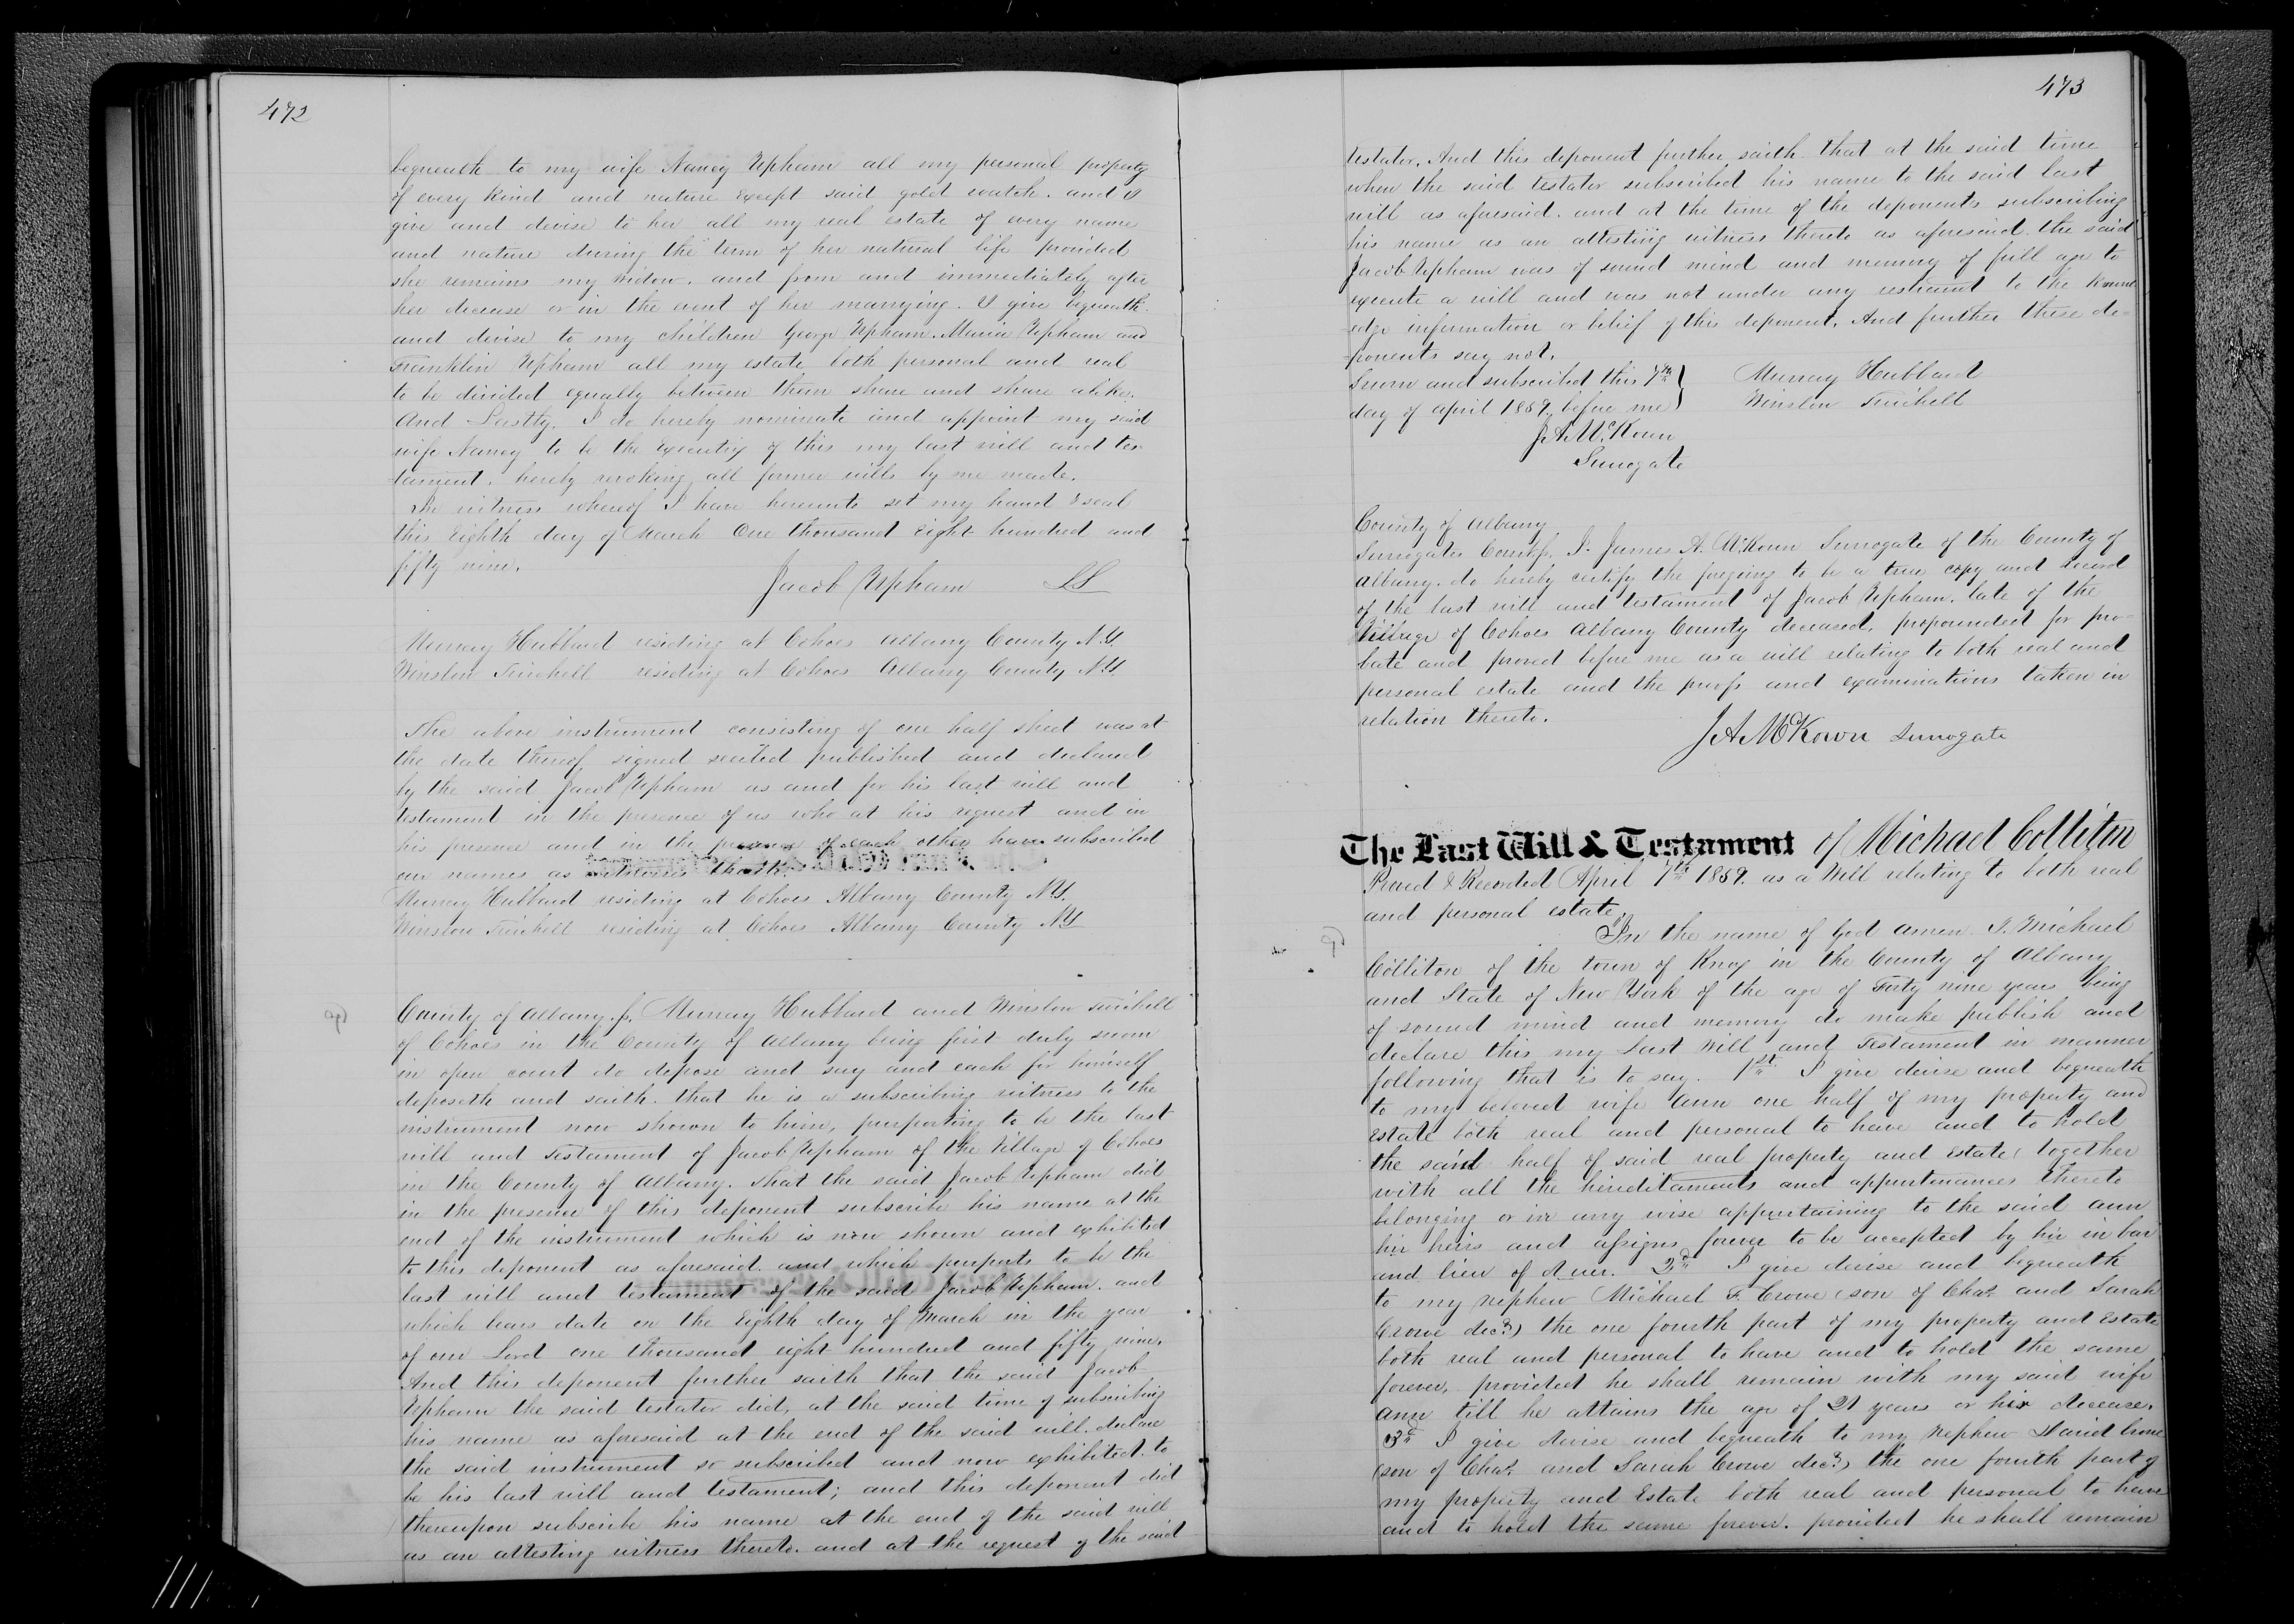 472
bequeath to my wife Nancy Upham all my personal property
of every kind and nature except said gold watch. and I
give and devise to her all my real estate of every name
and nature during the term of her natural life provided
she remains my widow. and from and immediately after
her decease or in the event of her marrying. I give bequeath
and devise to my children George Upham. Maria Upham and
Franklin Upham all my estate both personal and real
to be divided equally between them share and share alike.
And Lastly. I do hereby nominate and appoint my said
wife Nancy to be the executrix of this my last will and tes-
-tament. hereby revoking all former wills by me made.
In witness whereof I have hereunto set my hand & seal
this Eighth day of March One thousand Eight hundred and
fifty nine.
Jacob Upham LS
Murray Hubbard residing at Cohoes Albany County N.Y.
Winslow Twichell residing at Cohoes Albany County N.Y.
The above instrument consisting of one half sheet was at
the date thereof signed sealed published and declared
by the said Jacob Upham as and for his last will and
testament in the presence of us who at his request and in
his presence and in the presence of each other have subscribed
our names as witnesses thereto.
Murray Hubbard residing at Cohoes Albany County N.Y.
Winslow Twichell residing at Cohoes Albany County N.Y
County of Albany. ss. Murray Hubbard and Winslow Twichell
of Cohoes in the County of Albany being first duly sworn
in open court do depose and say and each for himself
deposeth and saith. that he is a subscribing witness to the
instrument now shown to him, purporting to be the last
will and Testament of Jacob Upham of the Village of Cohoes
in the County of Albany. That the said Jacob Upham did
in the presence of this deponent subscribe his name at the
end of the instrument which is now shown and exhibited
to this deponent as aforesaid. and which purports to be the
last will and testament of the said Jacob Upham. and
which bears date on the Eighth day of March in the year
of our Lord one thousand eight hundred and fifty nine.
And this deponent further saith that the said Jacob
Upham the said testator did, at the said time of subscribing
his name as aforesaid at the end of the said will. declare
the said instrument so subscribed and now exhibited. to
be his last will and testament; and this deponent did
thereupon subscribe his name at the end of the said will
as an attesting witness thereto. and at the request of the said
473
testator. And this deponent further saith that at the said time
when the said testator subscribed his name to the said last
will as aforesaid. and at the time of the deponents subscribing
his name as an attesting witness thereto as aforesaid. the said
Jacob Upham was of sound mind and memory of full age to
execute a will and was not under any restraint to the knowl
-edge information or belief of this deponent. And further these de-
-ponents say not.
Sworn and subscribed this 7th } Murray Hubbard
day of April 1859. before me } Winslow Twichell
J. A. McKown
Surrogate
County of Albany
Surrogates Court ss. I. James A. McKown Surrogate of the County of
Albany. do hereby certify the forgoing to be a true copy and record
of the last will and testament of Jacob Upham. late of the
Village of Cohoes Albany County deceased. propounded for pro-
bate and proved before me as a will relating to both real and
personal estate and the proofs and examinations taken in
relation thereto.
J A McKown Surrogate
The Last Will & Testament of Michael Colliton
Proved & Recorded April 7th 1859. as a Will relating to both real
and personal estate
In the name of God Amen. I. Michael
Colliton of the town of Knox in the County of Albany
and State of New York of the age of Forty nine years being
of sound mind and memory do make publish and
declare this my Last Will and Testament in manner
following that is to say. 1st I give devise and bequeath
to my beloved wife Ann one half of my property and
Estate both real and personal to have and to hold
the said half of said real property and Estate, together
with all the hereditaments and appurtenances thereto
belonging or in any wise appurtaining to the said Ann
her heirs and assigns forever to be accepted by her in bar
and lieu of dower. 2d I give devise and bequeath
to my nephew Michael F. Crowe (son of Chas. and Sarah
Crowe decd.) the one fourth part of my property and Estate
both real and personal to have and to hold the same
forever, provided he shall remain with my said wife
Ann till he attains the age of 21 years or her decease.
3d I give devise and bequeath to my Nephew David Crowe
(son of Chas. and Sarah Crowe decd.) the one fourth part of
my property and Estate both real and personal to have
and to hold the same forever. provided he shall remain